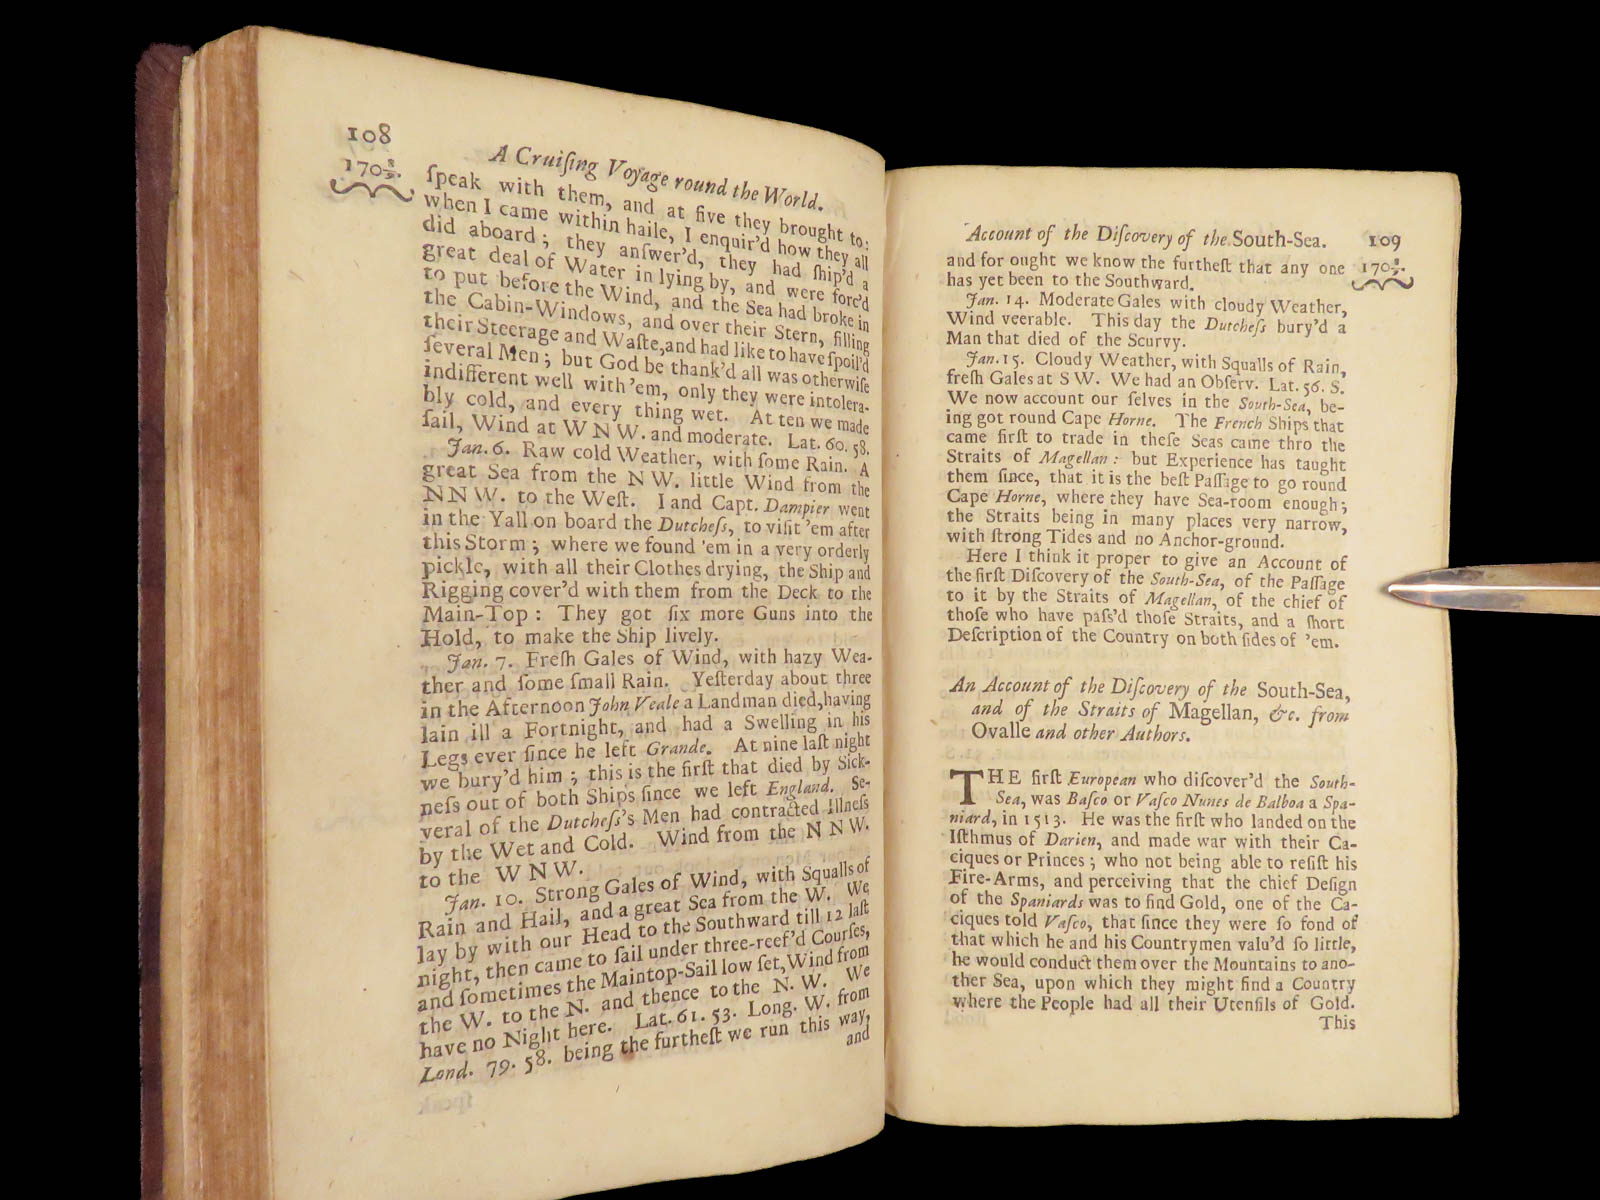 108
170 8/9.
A Cruiſing Voyage round the World.
ſpeak with them, and at five they brought to:
when I came within haile, I enquir'd how they all
did aboard; they anſwer'd, they had ſhip'd a
great deal of Water in lying by, and were forc'd
to put before the Wind, and the Sea had broke in
the Cabin-Windows, and over their Stern, filling
their Steerage and Waſte, and had like to have ſpoil'd
ſeveral Men; but God be thank'd all was otherwiſe
indifferent well with 'em, only they were intolera-
bly cold, and every thing wet. At ten we made
ſail, Wind at W N W. and moderate. Lat. 60. 58.
Jan. 6. Raw cold Weather, with ſome Rain. A
great Sea from the N W. little Wind from the
N N W. to the Weſt. I and Capt. Dampier went
in the Yall on board the Dutcheſs, to viſit 'em after
this Storm; where we found 'em in a very orderly
pickle, with all their Clothes drying, the Ship and
Rigging cover'd with them from the Deck to the
Main-Top: They got ſix more Guns into the
Hold, to make the Ship lively.
Jan. 7. Freſh Gales of Wind, with hazy Wea-
ther and ſome ſmall Rain. Yeſterday about three
in the Afternoon John Veale a Landman died, having
lain ill a Fortnight, and had a Swelling in his
Legs ever ſince he left Grande. At nine laſt night
we bury'd him; this is the firſt that died by Sick-
neſs out of both Ships ſince we left England. Se-
veral of the Dutcheſs's Men had contracted Illneſs
by the Wet and Cold. Wind from the N N W.
to the W N W.
Jan. 10. Strong Gales of Wind, with Squalls of
Rain and Hail, and a great Sea from the W. We
lay by with our Head to the Southward till 12 laſt
night, then came to ſail under three-reef'd Courſes,
and ſometimes the Maintop-Sail low ſet, Wind from
the W. to the N. and thence to the N. W. We
have no Night here. Lat. 61. 53. Long. W. from
Lond. 79. 58. being the furtheſt we run this way,
and
Account of the Diſcovery of the South-Sea. 109
170 8/9.
and for ought we know the furtheſt that any one
has yet been to the Southward.
Jan. 14. Moderate Gales with cloudy Weather,
Wind veerable. This day the Dutcheſs bury'd a
Man that died of the Scurvy.
Jan. 15. Cloudy Weather, with Squalls of Rain,
freſh Gales at S W. We had an Obſerv. Lat. 56. S.
We now account our ſelves in the South-Sea, be-
ing got round Cape Horne. The French Ships that
came firſt to trade in theſe Seas came thro the
Straits of Magellan: but Experience has taught
them ſince, that it is the beſt Paſſage to go round
Cape Horne, where they have Sea-room enough;
the Straits being in many places very narrow,
with ſtrong Tides and no Anchor-ground.
Here I think it proper to give an Account of
the firſt Diſcovery of the South-Sea, of the Paſſage
to it by the Straits of Magellan, of the chief of
thoſe who have paſs'd thoſe Straits, and a ſhort
Deſcription of the Country on both ſides of 'em.
An Account of the Diſcovery of the South-Sea,
and of the Straits of Magellan, &c. from
Ovalle and other Authors.
THE firſt European who diſcover'd the South-
Sea, was Baſco or Vaſco Nunes de Balboa a Spa-
niard, in 1513. He was the firſt who landed on the
Iſthmus of Darien, and made war with their Ca-
ciques or Princes; who not being able to reſiſt his
Fire-Arms, and perceiving that the chief Deſign
of the Spaniards was to find Gold, one of the Ca-
ciques told Vaſco, that ſince they were ſo fond of
that which he and his Countrymen valu'd ſo little,
he would conduct them over the Mountains to ano-
ther Sea, upon which they might find a Country
where the People had all their Utenſils of Gold.
This